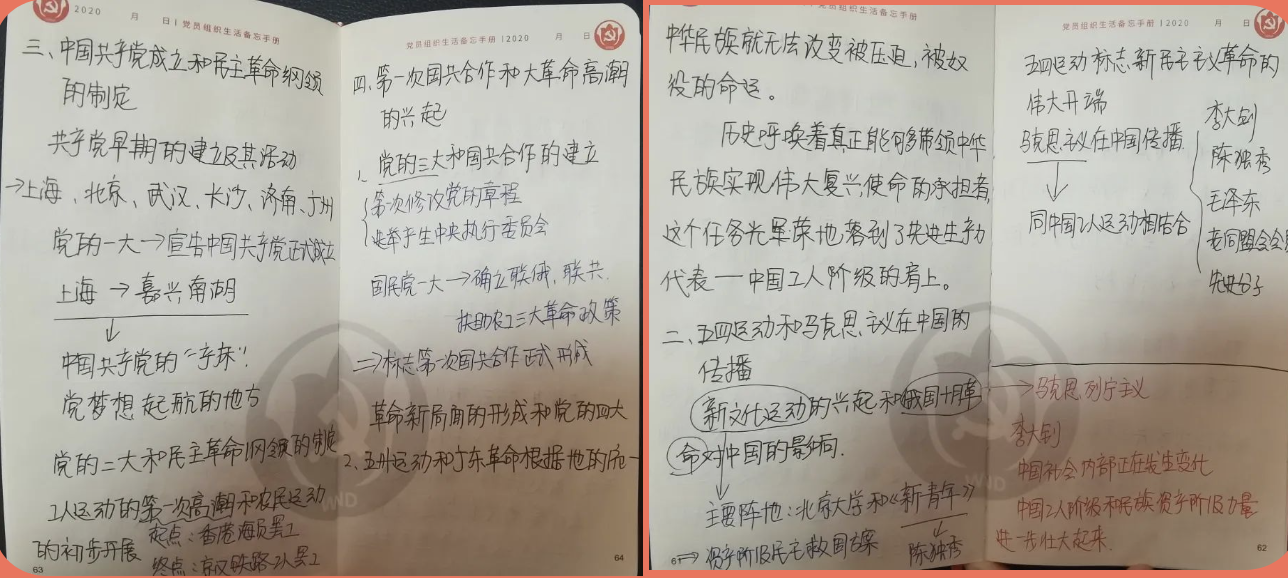 2020 月 日 | 党员组织生活备忘手册
三、中国共产党成立和民主革命纲领
的制定
共产党早期的建立及其活动
→上海、北京、武汉、长沙、济南、广州
党的一大→宣告中国共产党正式成立
上海 → 嘉兴南湖
↓
中国共产党的“产床”!
党梦想起航的地方
党的二大和民主革命纲领的制定
工人运动的第一次高潮和农民运动
起点:香港海员罢工
的初步开展
终点:京汉铁路工人罢工
63
党员组织生活备忘手册 | 2020 月 日
四、第一次国共合作和大革命高潮
的兴起
1、党的三大和国共合作的建立
第一次修改党的章程
选举产生中央执行委员会
国民党一大→确立联俄、联共、
扶助农工三大革命政策
=>标志第一次国共合作正式形成
革命新局面的形成和党的四大
2、五卅运动和广东革命根据地的统一
WND
64
党员组织生活备忘手册
中华民族就无法改变被压迫,被奴
役的命运。
历史呼唤着真正能够带领中华
民族实现伟大复兴使命的承担者,
这个任务光荣地落到了先进生产力
代表——中国工人阶级的肩上。
二、五四运动和马克思主义在中国的
传播
新文化运动的兴起和俄国十月革
命对中国的影响.
↓
主要阵地:北京大学和《新青年》
↓
陈独秀
=>资产阶级民主救国方案
61
党员组织生活备忘手册 | 2020 月 日
五四运动标志新民主主义革命的
伟大开端
马克思主义在中国传播
↓
同中国工人运动相结合
李大钊
陈独秀
毛泽东
老同盟会会员
先进分子
→马克思列宁主义
李大钊
中国社会内部正在发生变化
中国工人阶级和民族资产阶级力量
进一步壮大起来.
62